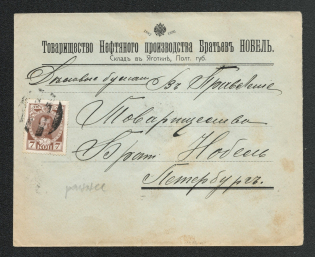 Товарищество Нефтяного производства Братьевъ НОБЕЛЬ.
Складъ въ Яготинѣ, Полт. губ.
Въ Правленіе
Товарищества
Брат. Нобель
Петербургъ.
7 КОП 7